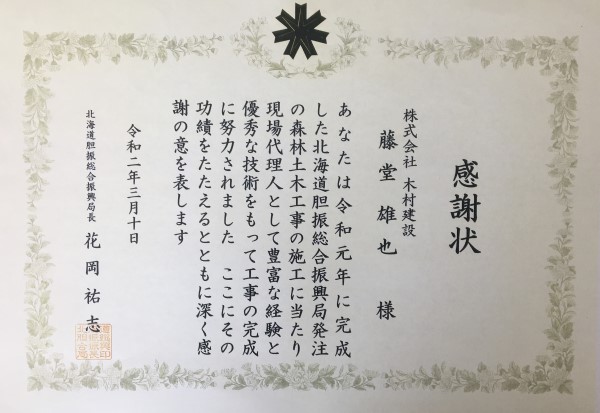 感謝状
株式会社 木村建設
藤堂雄也 様
あなたは令和元年に完成
した北海道胆振総合振興局発注
の森林土木工事の施工に当たり
現場代理人として豊富な経験と
優秀な技術をもって工事の完成
に努力されました ここにその
功績をたたえるとともに深く感
謝の意を表します
令和二年三月十日
北海道胆振総合振興局長 花岡祐志